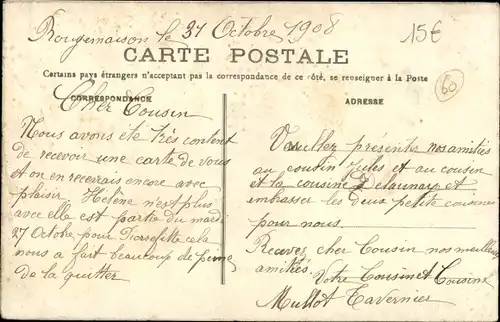 Rougemaison le 31 Octobre 1908
15€
CARTE POSTALE
Certains pays étrangers n'acceptant pas la correspondance de ce côté, se renseigner à la Poste
60
CORRESPONDANCE
ADRESSE
Cher Cousin
Nous avons été très content
de recevoir une carte de vous
et on en recevrais encore avec
plaisir. Hélène n'est plus
avec elle est partie du mardi
27 Octobre pour cela
nous a fait beaucoup de peine
de la quitter
Veuillez présenter nos amitiés
au cousin Jules et au cousin
et la cousine Delaunay et
embrasser les deux petite cousine
pour nous.
Recevez cher Cousin nos meilleures
amitiés.
Votre Cousin et Cousine
Mullot Tavernier